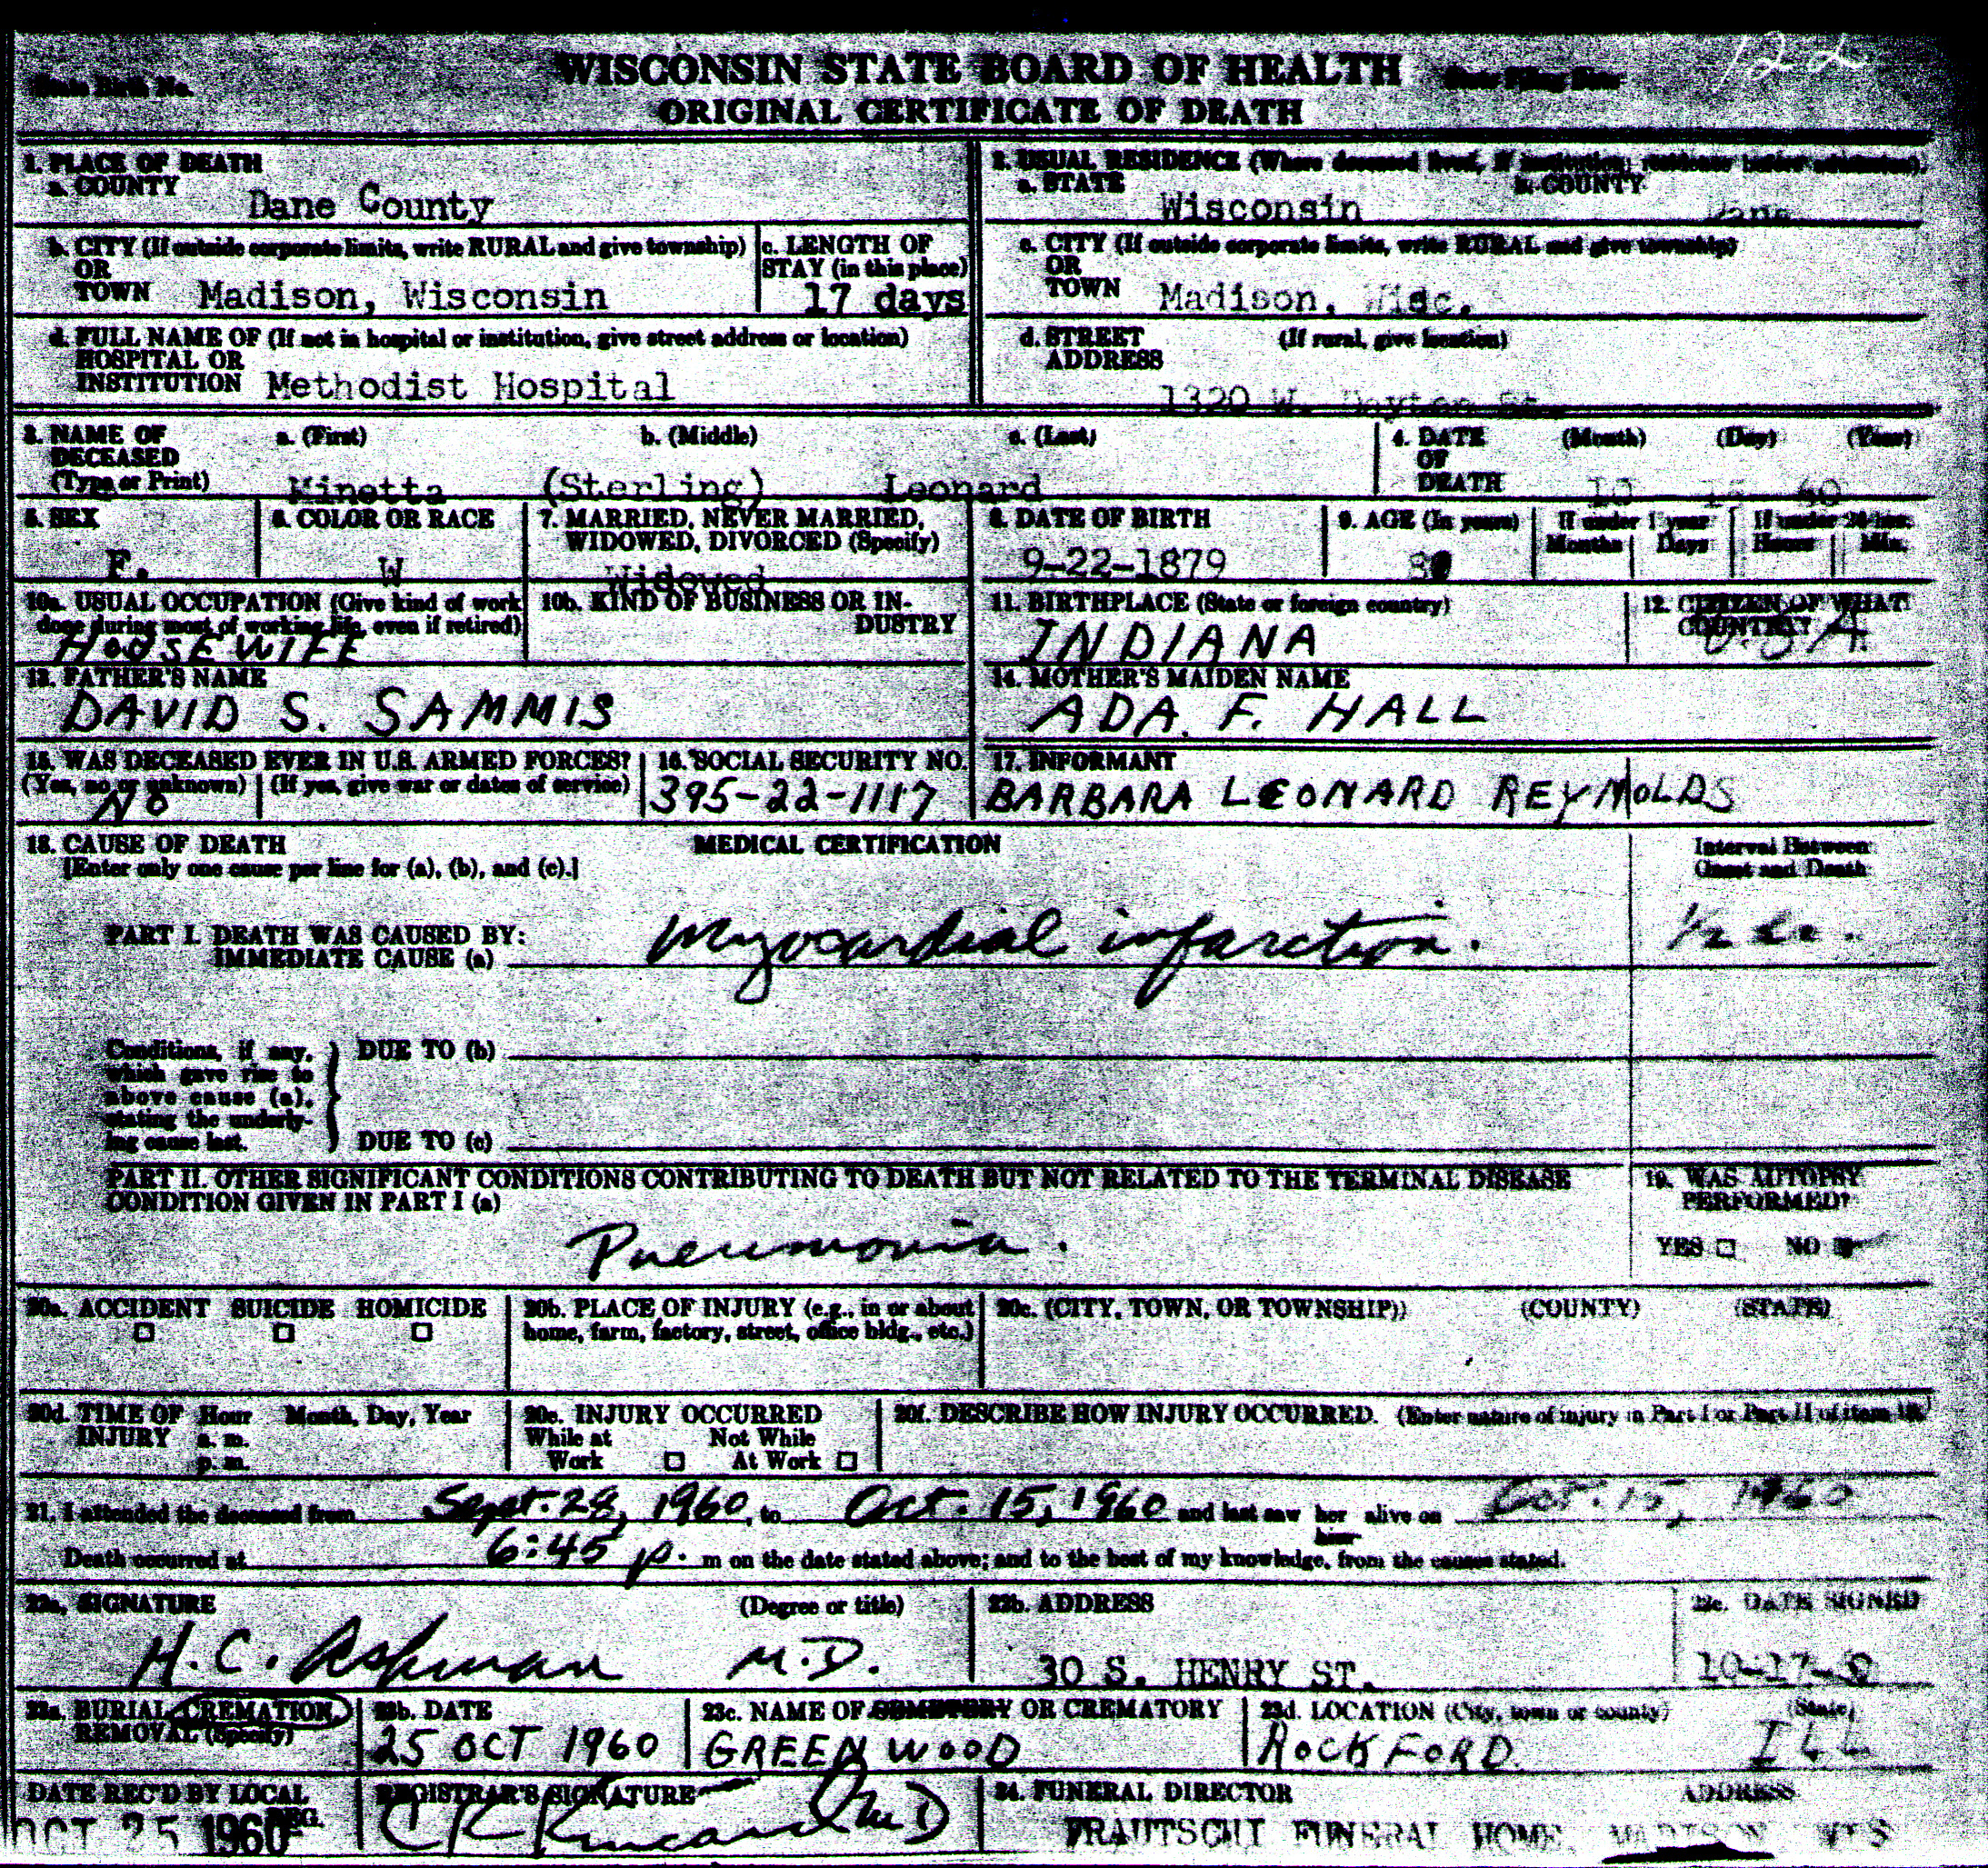 122
State Birth No.
WISCONSIN STATE BOARD OF HEALTH
ORIGINAL CERTIFICATE OF DEATH
1. PLACE OF DEATH
a. COUNTY
Dane County
2. USUAL RESIDENCE (Where deceased lived, If institution; residence before admission).
a. STATE
b. COUNTY
Wisconsin
Dane
b. CITY (If outside corporate limits, write RURAL and give township)
OR
TOWN Madison, Wisconsin
c. LENGTH OF
STAY (in this place)
17 days
c. CITY (If outside corporate limits, write RURAL and give township)
OR
TOWN Madison, Wisc.
d. FULL NAME OF (If not in hospital or institution, give street address or location)
HOSPITAL OR
INSTITUTION Methodist Hospital
d. STREET (If rural, give location)
ADDRESS
1320 W. Dayton St.
3. NAME OF
DECEASED
(Type or Print)
a. (First) b. (Middle) c. (Last)
Minetta (Sterling) Leonard
4. DATE
OF
DEATH
(Month) (Day) (Year)
10 15 60
5. SEX
F.
6. COLOR OR RACE
W
7. MARRIED, NEVER MARRIED,
WIDOWED, DIVORCED (Specify)
Widowed
8. DATE OF BIRTH
9-22-1879
9. AGE (In years)
If under 1 year
Months Days
If under 24 hrs.
Hours Min.
10a. USUAL OCCUPATION (Give kind of work
done during most of working life, even if retired)
HOUSEWIFE
10b. KIND OF BUSINESS OR IN-
DUSTRY
11. BIRTHPLACE (State or foreign country)
INDIANA
12. CITIZEN OF WHAT
COUNTRY?
U.S.A.
13. FATHER'S NAME
DAVID S. SAMMIS
14. MOTHER'S MAIDEN NAME
ADA F. HALL
15. WAS DECEASED EVER IN U.S. ARMED FORCES?
(Yes, no or unknown) (If yes, give war or dates of service)
NO
16. SOCIAL SECURITY NO.
395-22-1117
17. INFORMANT
BARBARA LEONARD REYNOLDS
18. CAUSE OF DEATH
[Enter only one cause per line for (a), (b), and (c).]
MEDICAL CERTIFICATION
Interval Between
Onset and Death
PART I. DEATH WAS CAUSED BY:
IMMEDIATE CAUSE (a) Myocardial infarction.
1/2
Conditions, if any,
which gave rise to
above cause (a),
stating the underly-
ing cause last.
DUE TO (b)
DUE TO (c)
PART II. OTHER SIGNIFICANT CONDITIONS CONTRIBUTING TO DEATH BUT NOT RELATED TO THE TERMINAL DISEASE
CONDITION GIVEN IN PART I (a)
Pneumonia.
19. WAS AUTOPSY
PERFORMED?
YES NO
20a. ACCIDENT SUICIDE HOMICIDE
20b. PLACE OF INJURY (e.g., in or about
home, farm, factory, street, office bldg., etc.)
20c. (CITY, TOWN, OR TOWNSHIP)) (COUNTY) (STATE)
20d. TIME OF Hour Month, Day, Year
INJURY a. m.
p. m.
20e. INJURY OCCURRED
While at Not While
Work At Work
20f. DESCRIBE HOW INJURY OCCURRED. (Enter nature of injury in Part I or Part II of item 18.)
21. I attended the deceased from Sept. 28, 1960, to Oct. 15, 1960 and last saw her alive on Oct. 15, 1960
him
Death occurred at 6:45 p. m on the date stated above; and to the best of my knowledge, from the causes stated.
22a. SIGNATURE (Degree or title)
H.C. Ashman M.D.
22b. ADDRESS
30 S. HENRY ST.
22c. DATE SIGNED
23a. BURIAL, CREMATION,
REMOVAL (Specify)
23b. DATE
25 OCT 1960
23c. NAME OF CEMETERY OR CREMATORY
GREENWOOD
23d. LOCATION (City, town or county) (State)
ROCKFORD. ILL
DATE REC'D BY LOCAL
REG.
OCT 25 1960
REGISTRAR'S SIGNATURE
24. FUNERAL DIRECTOR ADDRESS
FRAUTSCHI FUNERAL HOME MADISON WIS